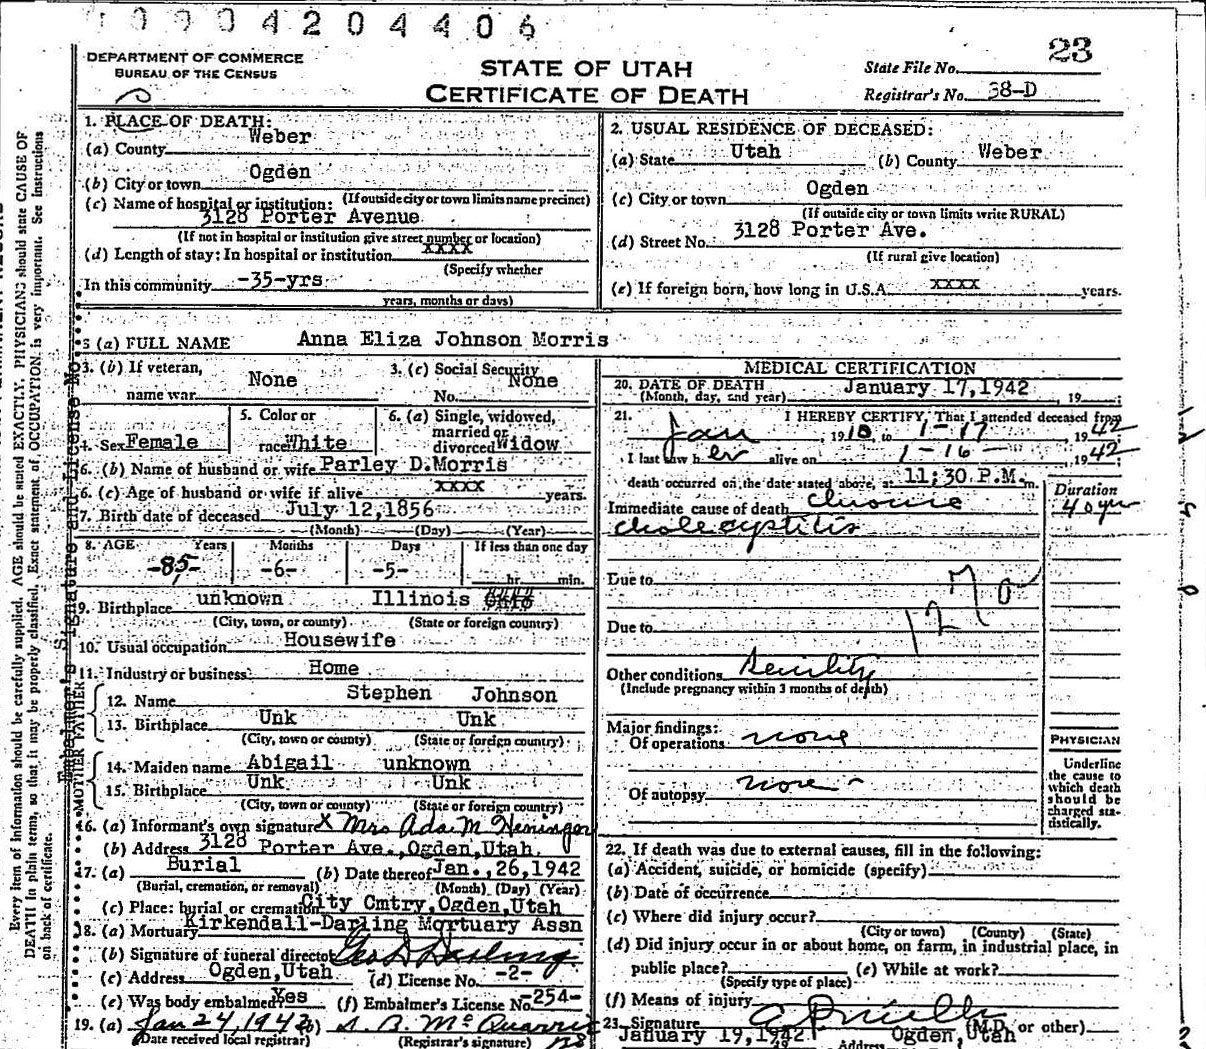 0004204406
DEPARTMENT OF COMMERCE
BUREAU OF THE CENSUS
STATE OF UTAH
CERTIFICATE OF DEATH
23
State File No.
Registrar's No. 38-D
1. PLACE OF DEATH:
(a) County Weber
(b) City or town Ogden
(If outside city or town limits name precinct)
(c) Name of hospital or institution:
3128 Porter Avenue
(If not in hospital or institution give street number or location)
(d) Length of stay: In hospital or institution xxxx
(Specify whether
In this community -35-yrs
years, months or days)
2. USUAL RESIDENCE OF DECEASED:
(a) State Utah (b) County Weber
(c) City or town Ogden
(If outside city or town limits write RURAL)
(d) Street No. 3128 Porter Ave.
(If rural give location)
(e) If foreign born, how long in U.S.A. xxxx years.
3 (a) FULL NAME Anna Eliza Johnson Morris
3. (b) If veteran,
name war None
3. (c) Social Security
No. None
4. Sex Female
5. Color or
race White
6. (a) Single, widowed,
married or
divorced Widow
6. (b) Name of husband or wife Parley D. Morris
6. (c) Age of husband or wife if alive xxxx years.
7. Birth date of deceased July 12, 1856
(Month) (Day) (Year)
8. AGE Years Months Days If less than one day
-85- -6- -5- hr. min.
9. Birthplace unknown Illinois
(City, town, or county) (State or foreign country)
10. Usual occupation Housewife
11. Industry or business Home
FATHER
12. Name Stephen Johnson
13. Birthplace Unk Unk
(City, town or county) (State or foreign country)
MOTHER
14. Maiden name Abigail unknown
15. Birthplace Unk Unk
(City, town or county) (State or foreign country)
16. (a) Informant's own signature X Mrs Ada M Heninger
(b) Address 3128 Porter Ave., Ogden, Utah.
17. (a) Burial (b) Date thereof Jan., 26, 1942
(Burial, cremation, or removal) (Month) (Day) (Year)
(c) Place: burial or cremation City Cmtry, Ogden, Utah
18. (a) Mortuary Kirkendall-Darling Mortuary Assn
(b) Signature of funeral director Geo D Darling
(c) Address Ogden, Utah (d) License No. -2-
(e) Was body embalmed? Yes (f) Embalmer's License No. -254-
19. (a) Jan 24, 1942 (b)
Date received local registrar) (Registrar's signature)
MEDICAL CERTIFICATION
20. DATE OF DEATH January 17, 1942
(Month, day, and year) , 19
21. I HEREBY CERTIFY, That I attended deceased from
Jan , 1910, to 1-17 1942
I last saw her alive on 1-16- , 1942
death occurred on the date stated above, at 11;30 P.M. m.
Immediate cause of death chronic
cholecystitis
Duration
40 yrs
Due to
Due to
127 0
Other conditions Senility
(Include pregnancy within 3 months of death)
Major findings:
Of operations none
Of autopsy none
PHYSICIAN
Underline
the cause to
which death
should be
charged sta-
tistically.
22. If death was due to external causes, fill in the following:
(a) Accident, suicide, or homicide (specify)
(b) Date of occurrence
(c) Where did injury occur?
(City or town) (County) (State)
(d) Did injury occur in or about home, on farm, in industrial place, in
public place? (e) While at work?
(Specify type of place)
(f) Means of injury
23. Signature (M.D. or other)
January 19, 1942 Address Ogden, Utah
Every item of information should be carefully supplied. AGE should be stated EXACTLY. PHYSICIANS should state CAUSE OF
DEATH in plain terms, so that it may be properly classified. Exact statement of OCCUPATION is very important. See instructions
on back of certificate.
Embalmer's Signature and License No.